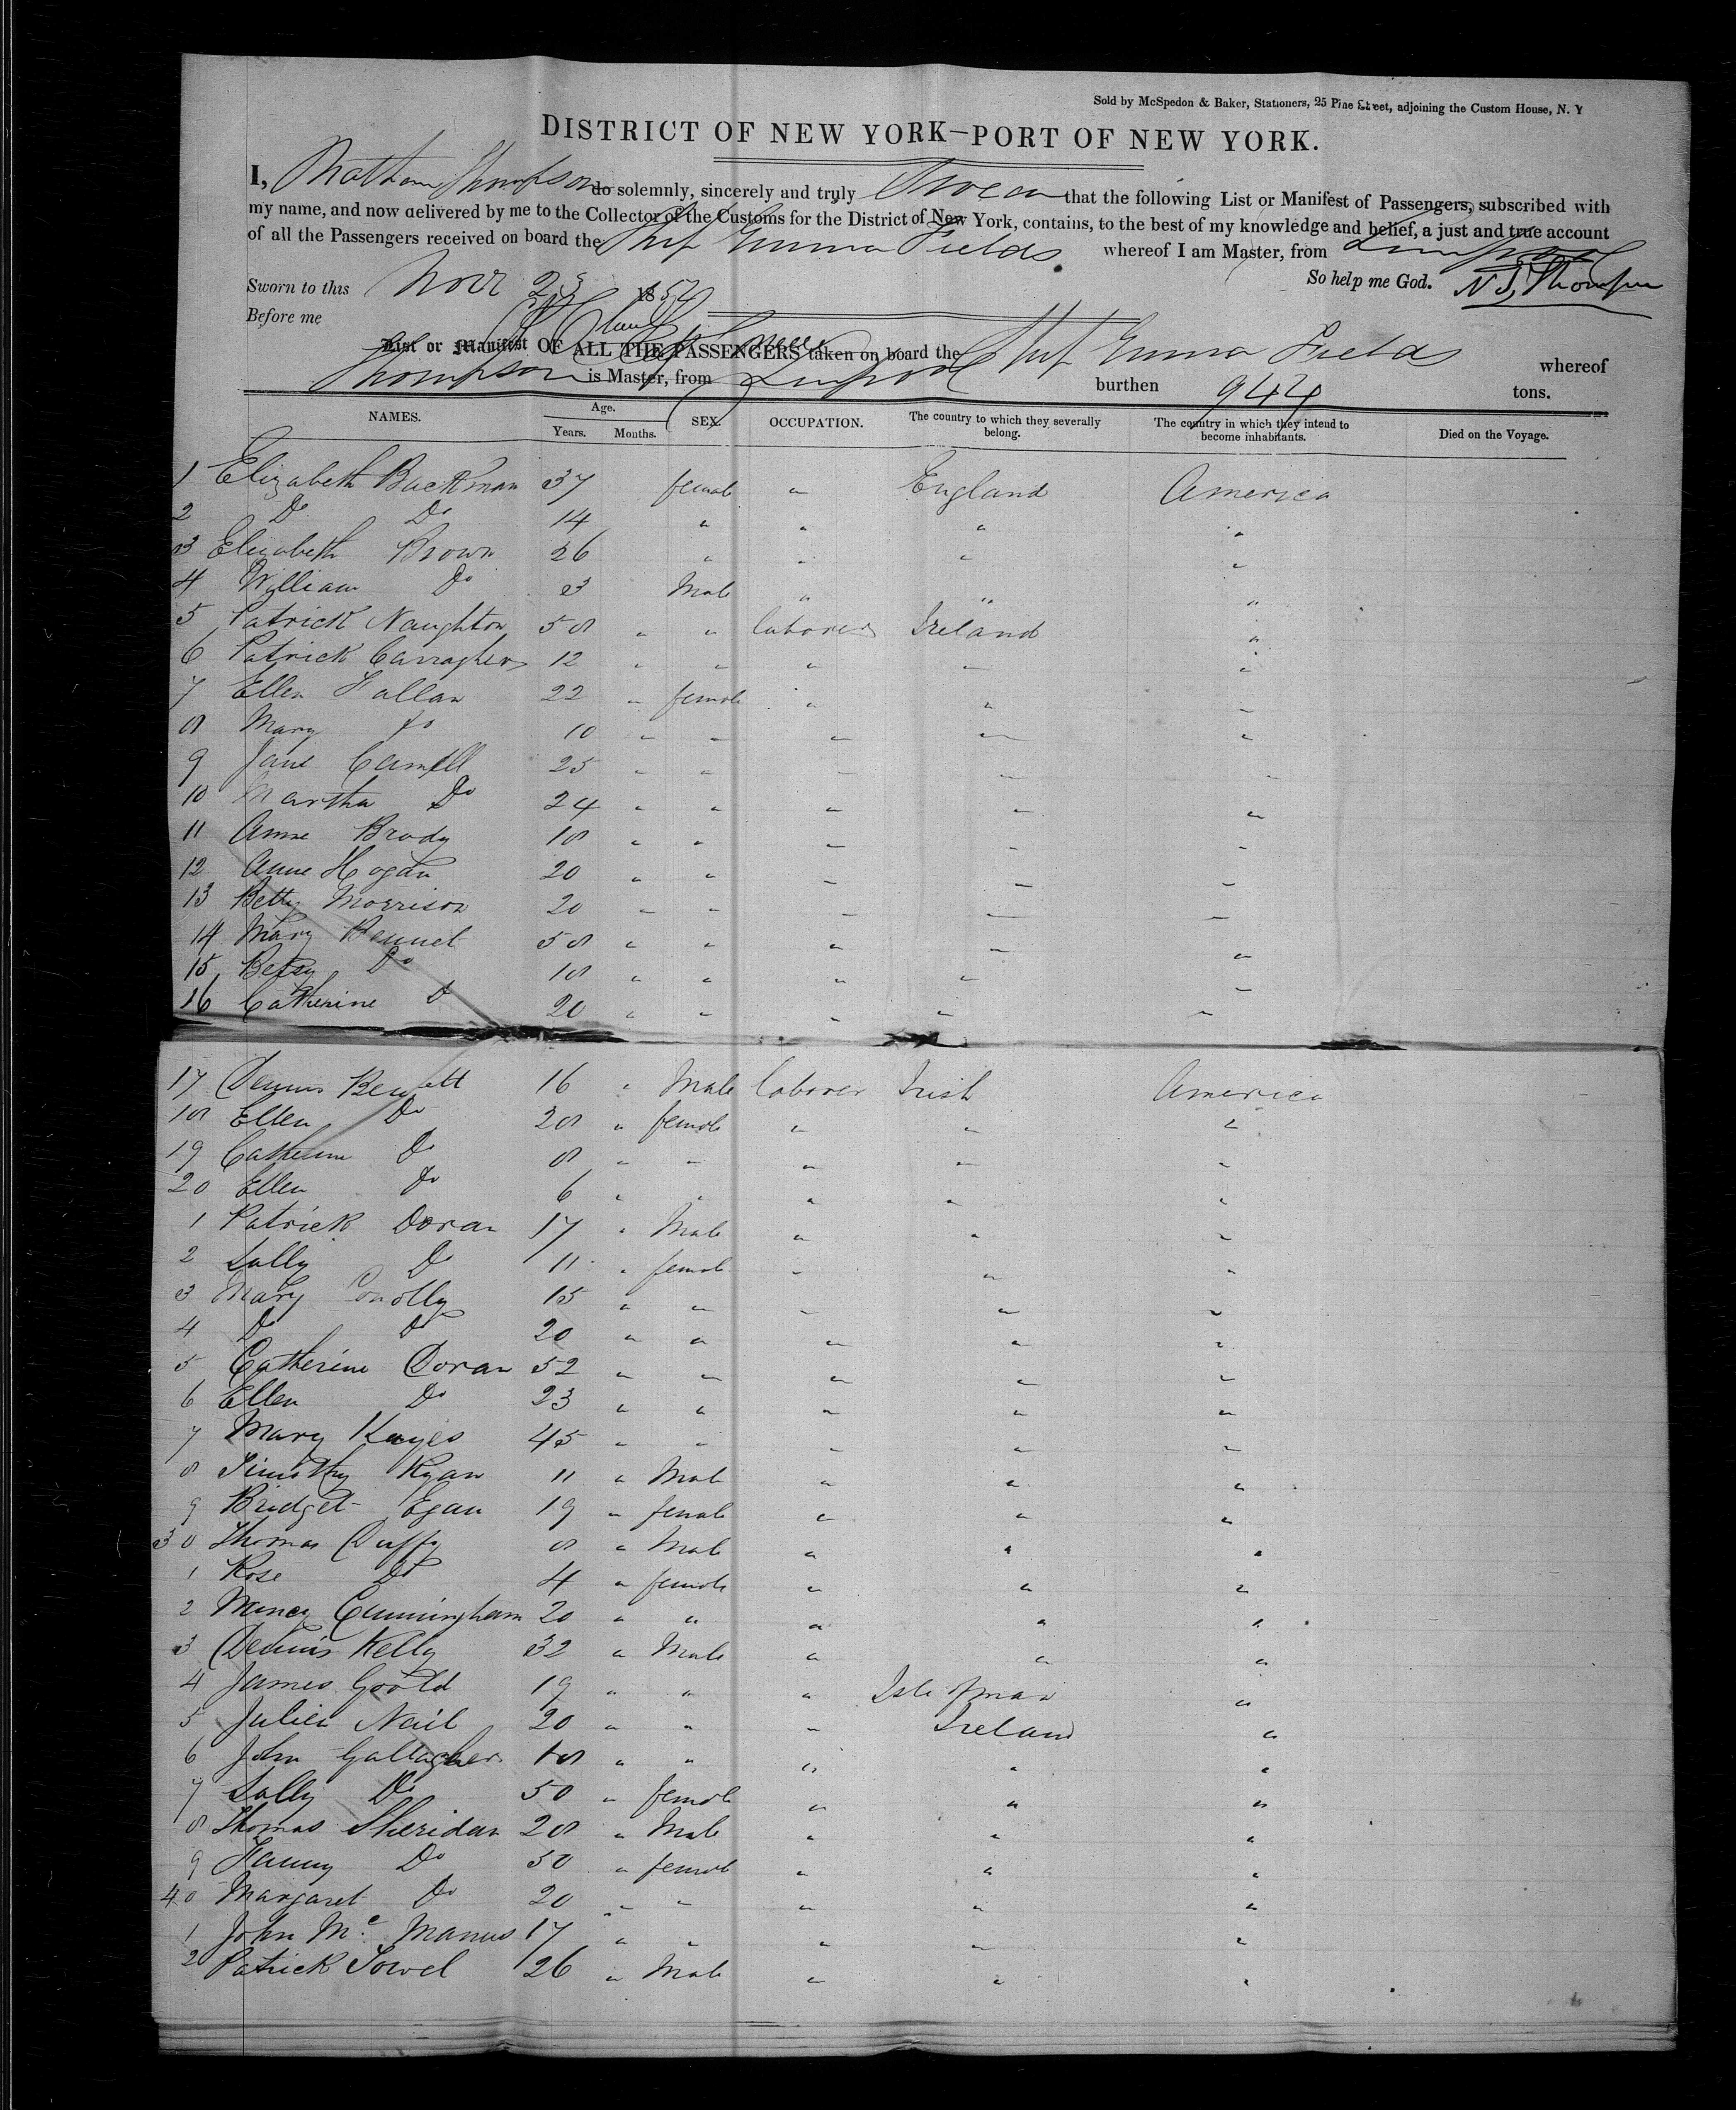 Sold by McSpedon & Baker, Stationers, 25 Pine Street, adjoining the Custom House, N. Y
DISTRICT OF NEW YORK—PORT OF NEW YORK.
I, Nathan Thompson do solemnly, sincerely and truly Swear that the following List or Manifest of Passengers, subscribed with
my name, and now delivered by me to the Collector of the Customs for the District of New York, contains, to the best of my knowledge and belief, a just and true account
of all the Passengers received on board the Ship Emma Fields whereof I am Master, from Liverpool
Sworn to this Novr 23 1854 So help me God. N S, Thompson
Before me
List or Manifest OF ALL THE PASSENGERS taken on board the Ship Emma Fields whereof
Thompson is Master, from Liverpool burthen 944 tons.
NAMES. Age. Years. Months. SEX. OCCUPATION. The country to which they severally belong. The country in which they intend to become inhabitants. Died on the Voyage.
1 Elizabeth Backman 37 female " England America
2 Do Do 14 " " " "
3 Elizabeth Brown 26 " " " "
4 William Do 3 Male " " "
5 Patrick Naughton 58 " " laborer Ireland "
6 Patrick Carragher 12 " " " " "
7 Ellen Fallan 22 " female " " "
8 Mary Do 10 " " " " "
9 Jane Camell 25 " " " " "
10 Martha Do 24 " " " " "
11 Anne Brody 18 " " " " "
12 Anne Hogan 20 " " " " "
13 Betty Morrison 20 " " " " "
14 Mary Bennet 58 " " " " "
15 Betsy Do 18 " " " " "
16 Catherine D 20 " " " " "
17 Dennis Benett 16 " Male laborer Irish America
18 Ellen Do 28 " female " " "
19 Catherine Do 8 " " " " "
20 Ellen Do 6 " " " " "
1 Patrick Doran 17 " Male " " "
2 Sally Do 11 " female " " "
3 Mary Conolly 15 " " " " "
4 Do Do 20 " " " " "
5 Catherine Doran 52 " " " " "
6 Ellen Do 23 " " " " "
7 Mary Kayes 45 " " " " "
8 Timothy Ryan 11 " Male " " "
9 Bridget Egan 19 " female " " "
30 Thomas Duffy 8 " Male " " "
1 Rose Do 4 " female " " "
2 Mency Cunningham 20 " " " " "
3 Dennis Kelly 32 " Male " " "
4 James Goold 19 " " " Isle of man "
5 Julien Neil 20 " " " Ireland "
6 John Gallagher 18 " " " " "
7 Sally Do 50 " female " " "
8 Thomas Sheridan 28 " Male " " "
9 Fanny Do 50 " female " " "
40 Margaret Do 20 " " " " "
1 John Mc Manus 17 " " " " "
2 Patrick Towel 26 " Male " " "